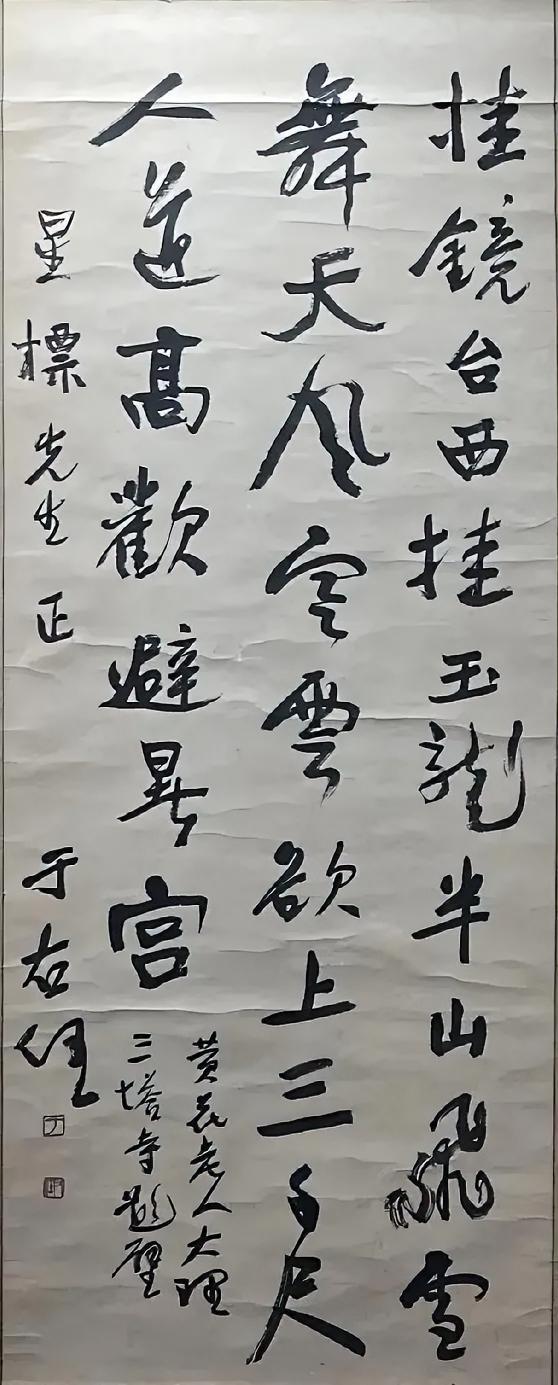 挂鏡台西挂玉龍半山飛雪
舞天风寒雲欲上三千尺
人道髙歡避暑宫
黄花老人大理
三塔寺題壁
星標先生正 于右任